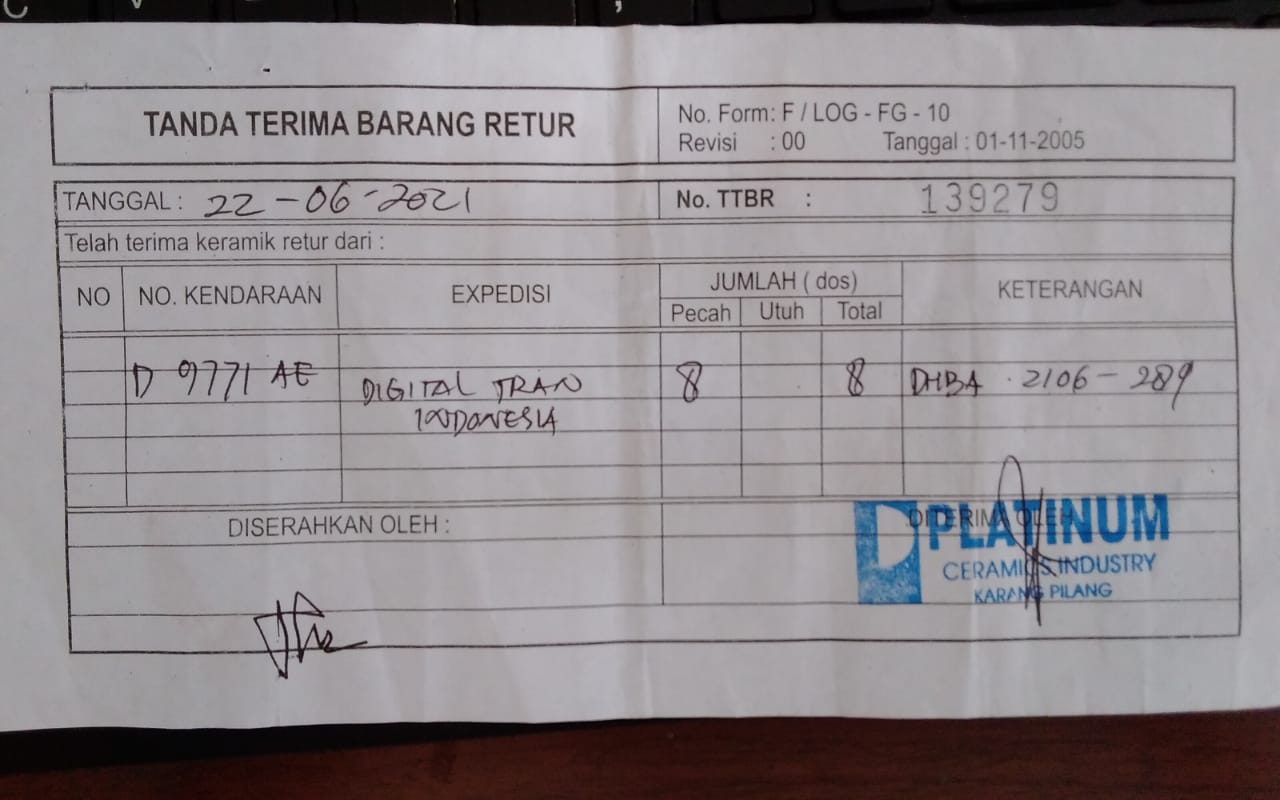 TANDA TERIMA BARANG RETUR
No. Form: F / LOG - FG - 10
Revisi : 00 Tanggal : 01-11-2005
TANGGAL : 22-06-2021
No. TTBR : 139279
Telah terima keramik retur dari :
NO NO. KENDARAAN EXPEDISI JUMLAH ( dos) KETERANGAN
Pecah Utuh Total
D 9771 AE DIGITAL TRAN 8 8 DHBA . 2106 - 289
INDONESIA
DISERAHKAN OLEH : DITERIMA OLEH
PLATINUM
CERAMICS INDUSTRY
KARANG PILANG